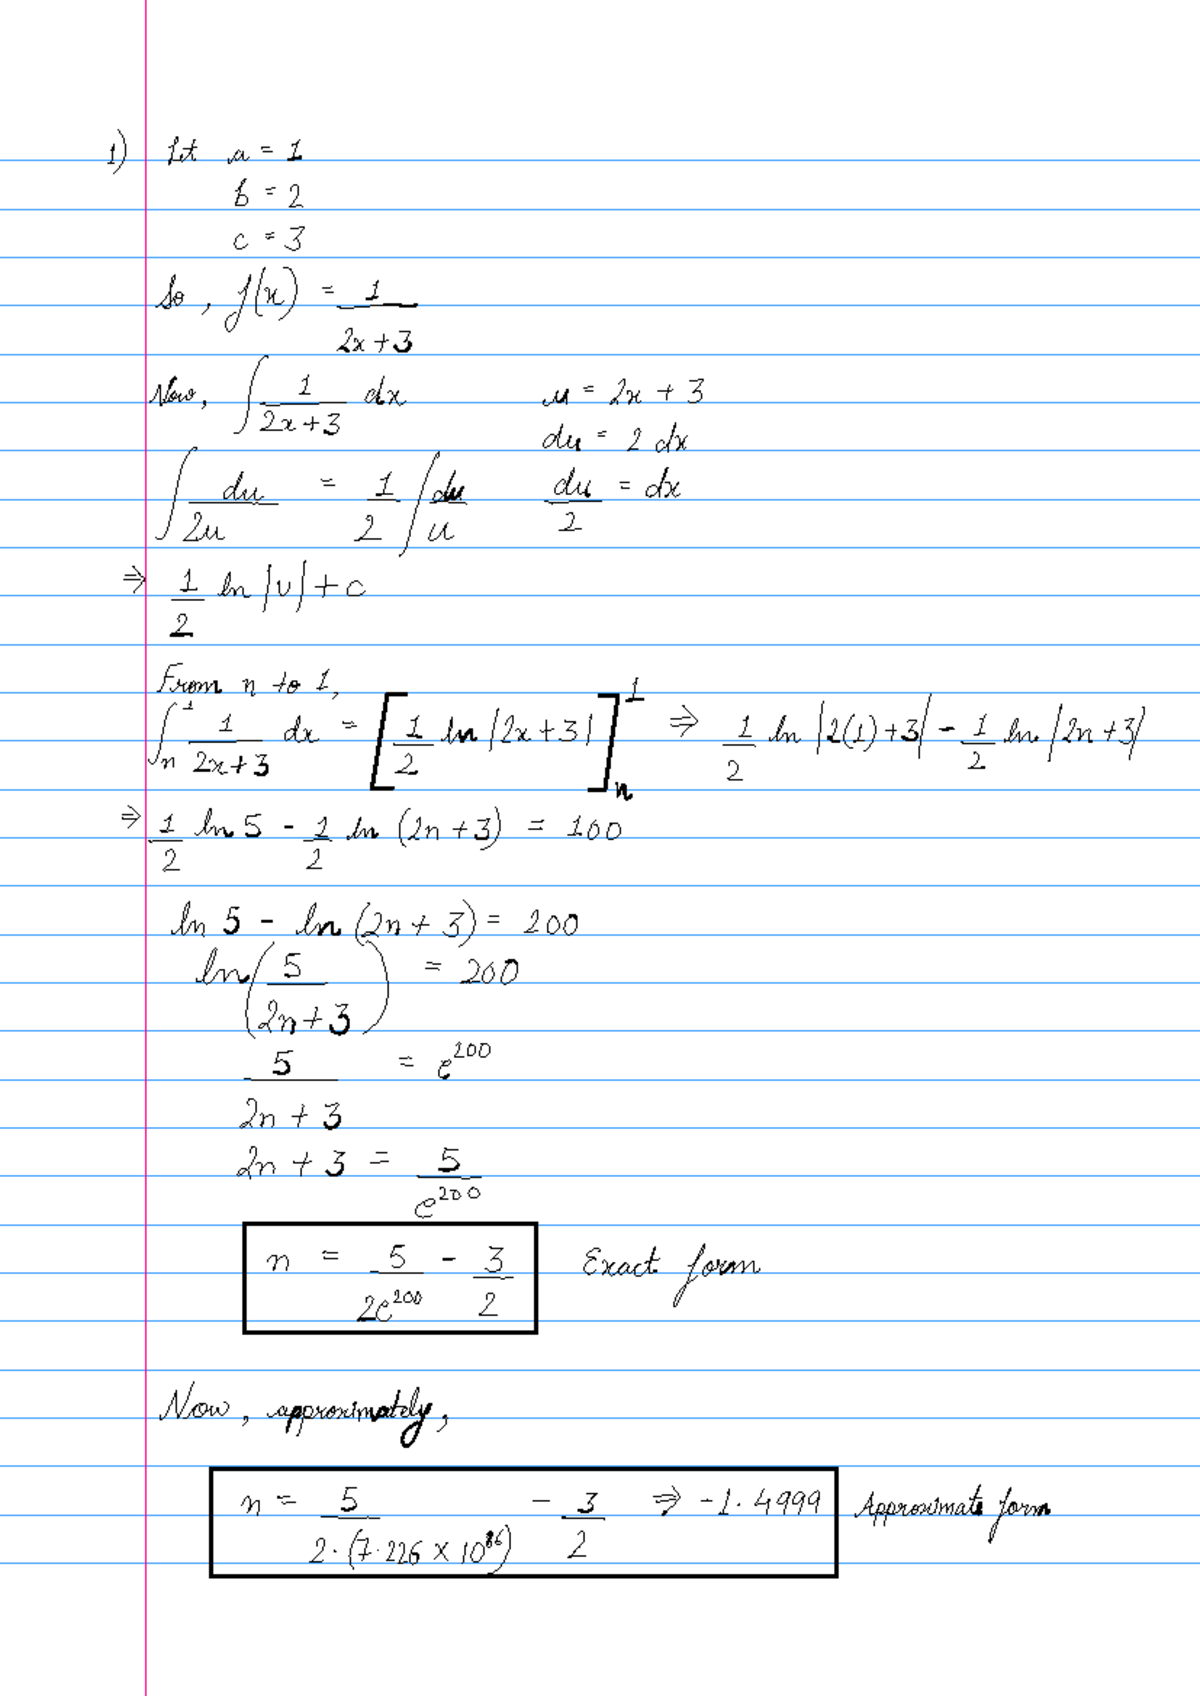 1) Let a = 1
b = 2
c = 3
So, f(x) = 1/(2x+3)
Now, ∫ 1/(2x+3) dx    u = 2x + 3
du = 2 dx
∫ du/2u = 1/2 ∫ du/u    du/2 = dx
⇒ 1/2 ln |u| + c
From n to 1,
∫_n^1 1/(2x+3) dx = [1/2 ln |2x+3|]_n^1 ⇒ 1/2 ln |2(1)+3| - 1/2 ln |2n+3|
⇒ 1/2 ln 5 - 1/2 ln (2n+3) = 100
ln 5 - ln (2n + 3) = 200
ln (5/(2n+3)) = 200
5/(2n + 3) = e^200
2n + 3 = 5/e^200
n = 5/(2e^200) - 3/2    Exact form
Now, approximately,
n = 5/(2·(7.226 × 10^86)) - 3/2 ⇒ -1.4999    Approximate form